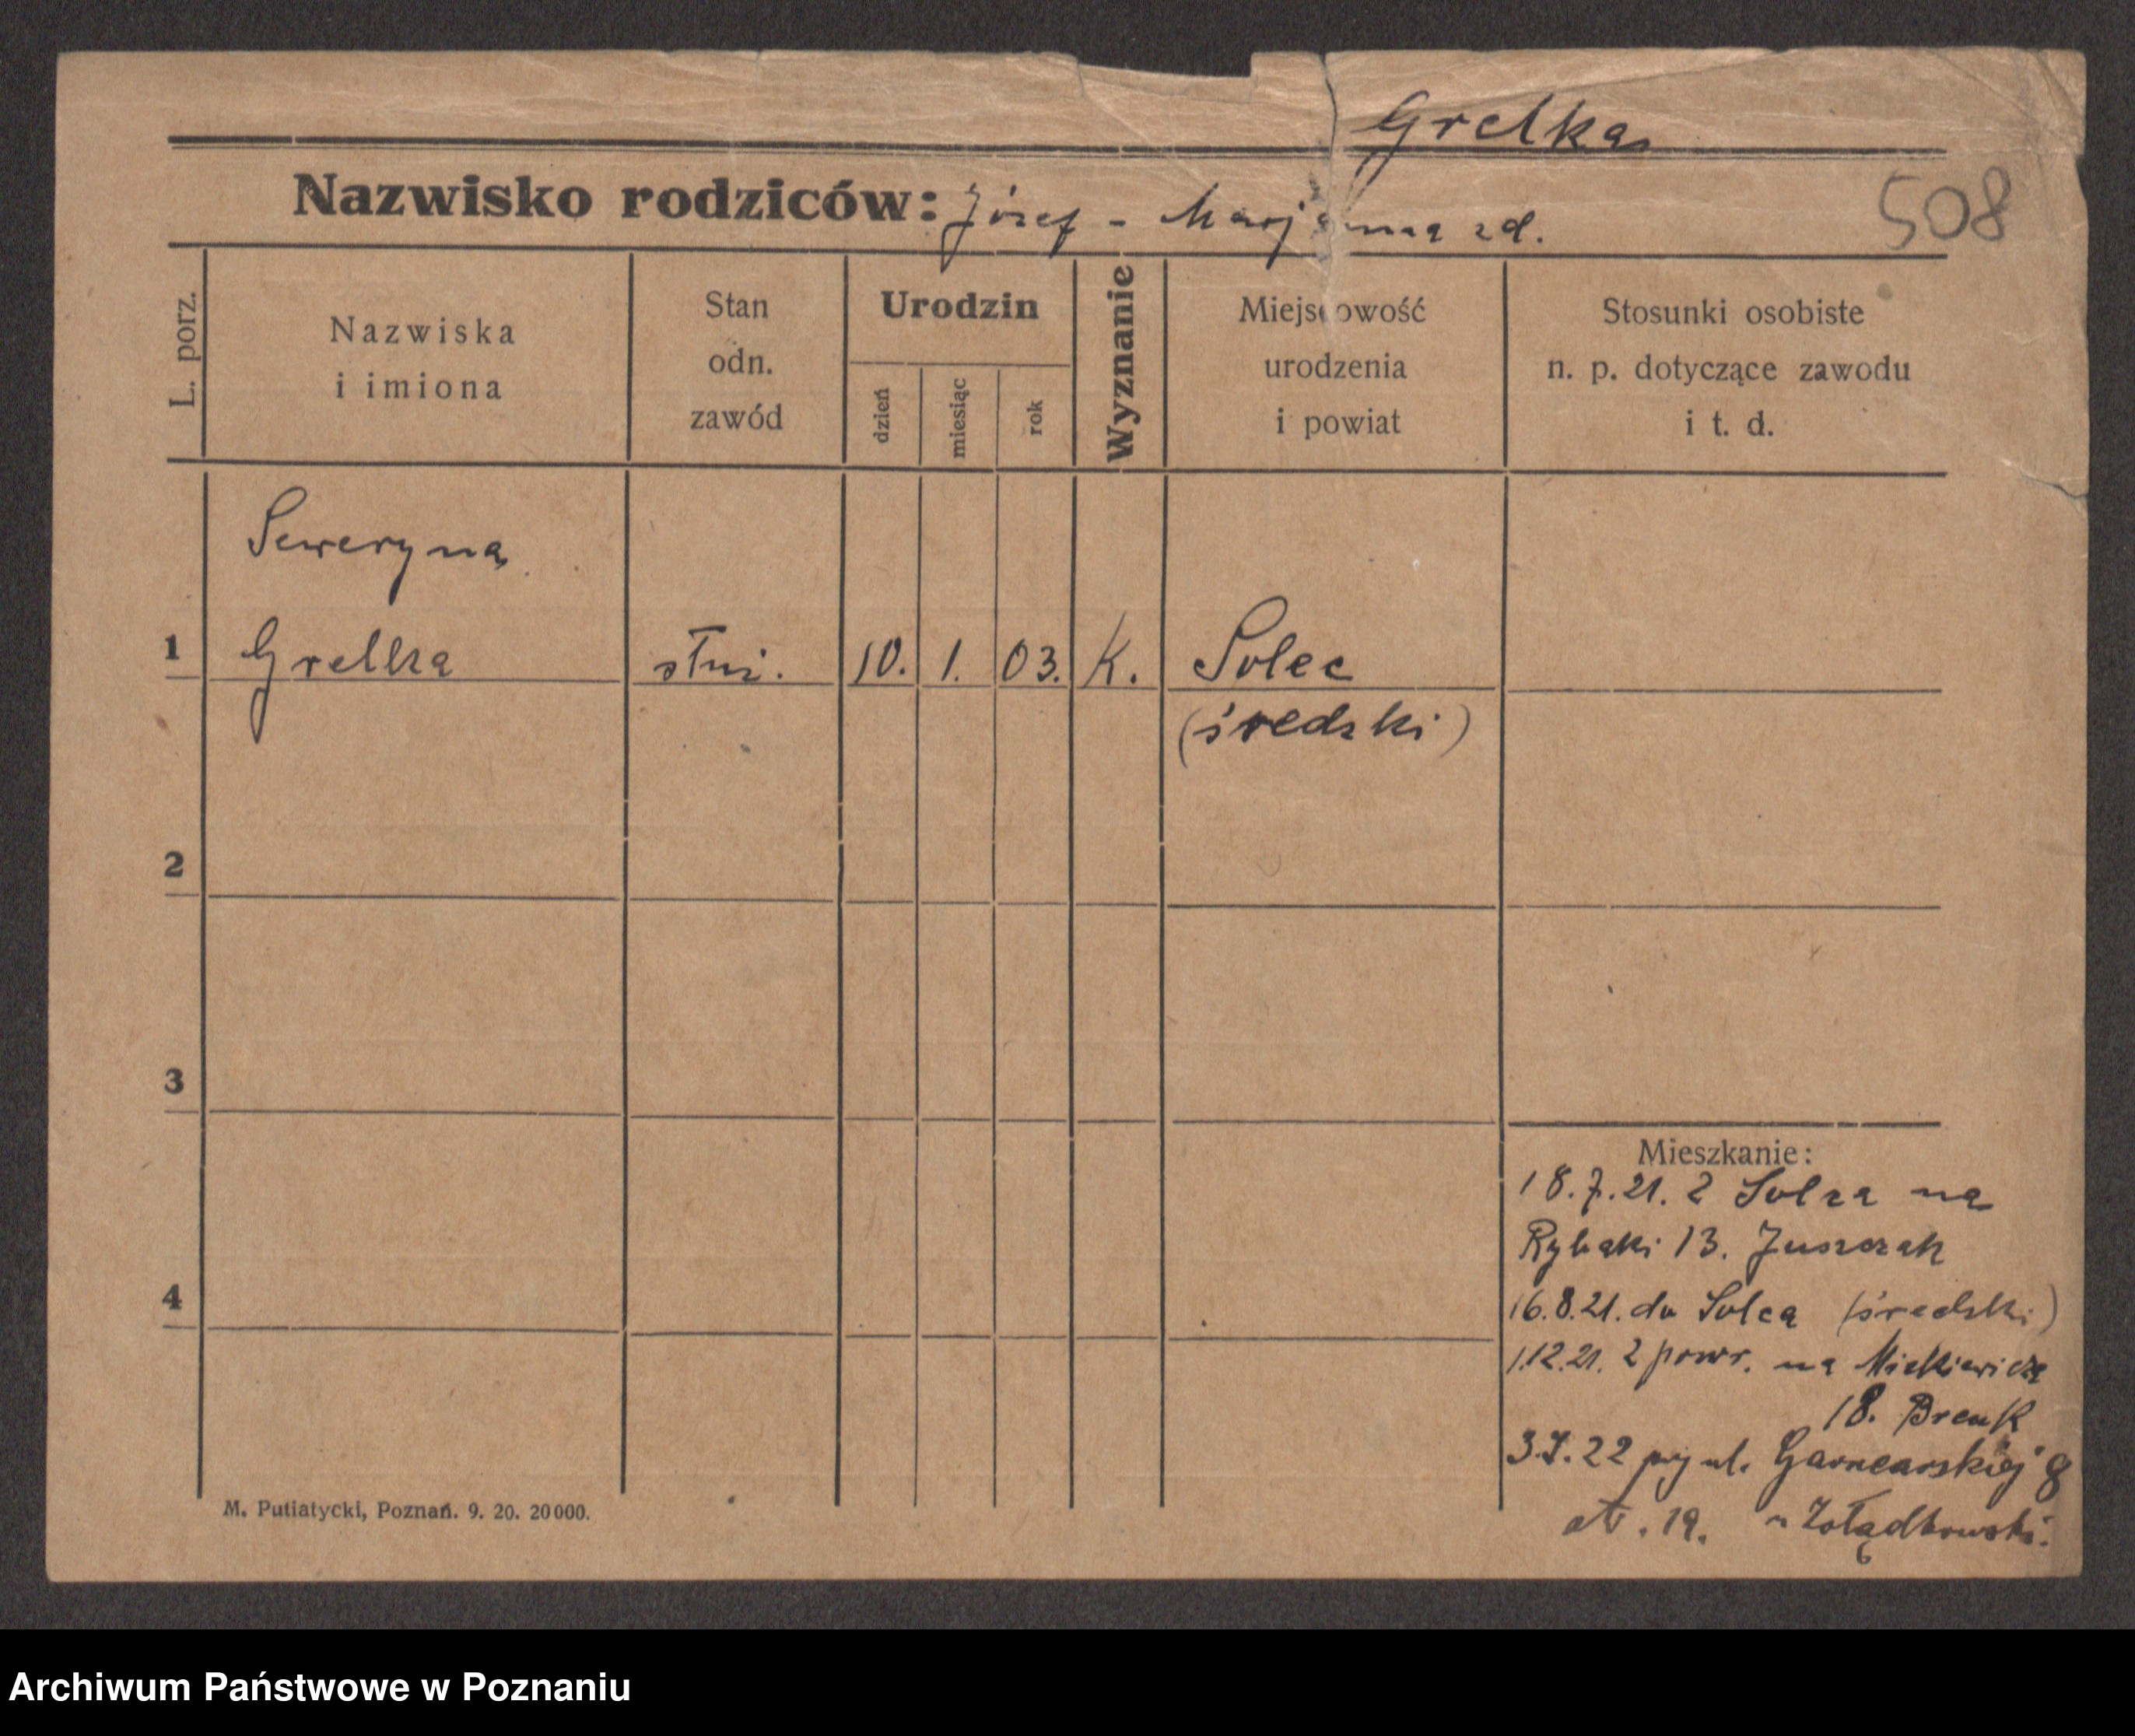 Grelka
Nazwisko rodziców: Józef - Marjanna zd.
508
L. porz.
Nazwiska
i imiona
Stan
odn.
zawód
Urodzin
dzień
miesiąc
rok
Wyznanie
Miejscowość
urodzenia
i powiat
Stosunki osobiste
n. p. dotyczące zawodu
i t. d.
Seweryna
1 Grelka służ. 10. 1. 03. K. Solec
(średzki)
2
3
Mieszkanie:
18.7.21. z Solca na
Rybaki 13. Juszczak
4
16.8.21. do Solca (średzki)
1.12.21. z powr. na Mickiewicza
18. Brenk
3.I.22 przy ul. Garncarskiej 8
19. u Żołądkowski.
M. Putiatycki, Poznań. 9. 20. 20000.
Archiwum Państwowe w Poznaniu